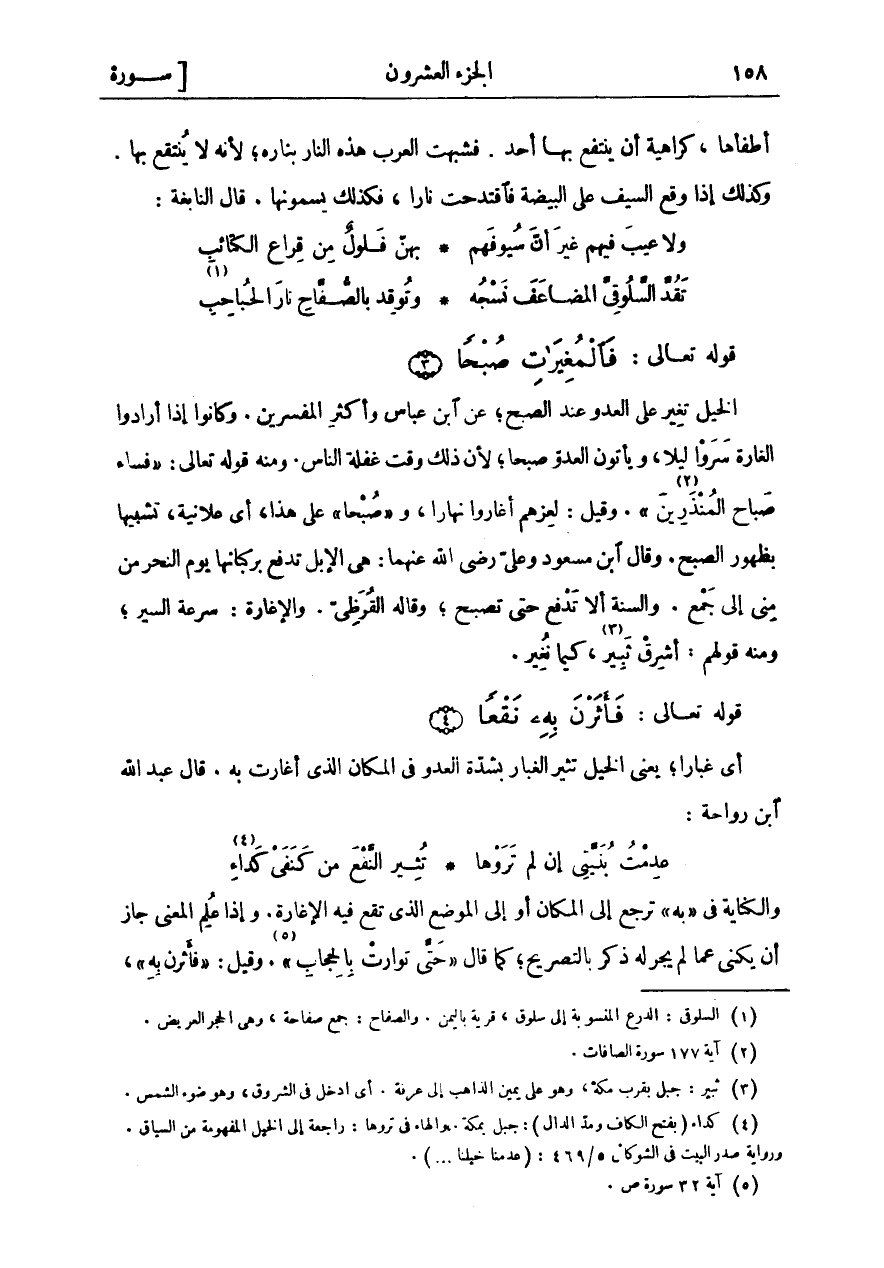 ١٥٨ الجزء العشرون [ ســورة
أطفأها ، كراهية أن ينتفع بهــا أحد . فشبهت العرب هذه النار بناره؛ لأنه لا يُنتفع بها .
وكذلك إذا وقع السيف على البيضة فاقتدحت نارا ، فكذلك يسمونها . قال النابغة :
ولا عيبَ فيهم غيرَ أنّ سُيوفَهم * بهنّ فُـلولٌ مِن قِراع الكتائبِ
تَقُدَّ السَّلُوقِيَّ المضـاعَفَ نَسْجُه * وتُوقِد بالصُّـفَّاحِ نارَ الحُباحِبِ (١)
قوله تعـالى : فَٱلْمُغِيرَٰتِ صُبْحًا ٣
الخيل تغير على العدو عند الصبح؛ عن آبن عباس وأكثرِ المفسرين . وكانوا إذا أرادوا
الغارة سَرَوْا ليلا، ويأتون العدوّ صبحا؛ لأن ذلك وقت غفلة الناس. ومنه قوله تعالى: «فساء
صَباح المُنْذَرِينَ (٢)» . وقيل : لعِزهم أغاروا نهارا ، و «صُبْحا» على هذا، أى علانية، تشبيها
بظهور الصبح. وقال آبن مسعود وعلىّ رضى الله عنهما: هى الإبل تدفع بركبانها يوم النحر من
مِنى إلى جَمْع . والسنة ألا تَدْفع حتى تصبح ؛ وقاله القُرَظِىّ . والإغارة : سرعة السير ؛
ومنه قولهم : أشرِقْ ثَبِير (٣)، كيما نُغِير .
قوله تعـالى : فَأَثَرْنَ بِهِۦ نَقْعًا ٤
أى غبارا؛ يعنى الخيل تثير الغبار بشدّة العدو فى المكان الذى أغارت به . قال عبد الله
آبن رواحة :
عدِمْتُ بُنَيَّتِى إن لم تَرَوْها * تُثِـير النَّقْعَ من كَنَفَىْ كَداءِ (٤)
والكناية فى «به» ترجع إلى المكان أو إلى الموضع الذى تقع فيه الإغارة. وإذا عُلِم المعنى جاز
أن يكنى عما لم يجر له ذكر بالتصريح؛ كما قال «حَتَّى توارتْ بِالحِجابِ (٥)». وقيل: «فأَثرن بِه»،
(١) السلوقى : الدرع المنسوبة إلى سلوق ، قرية باليمن . والصفاح : جمع صفاحة ، وهى الحجر العريض .
(٢) آية ١٧٧ سورة الصافات .
(٣) ثبير : جبل بقرب مكة، وهو على يمين الذاهب إلى عرفة . أى ادخل فى الشروق، وهو ضوء الشمس .
(٤) كداء (بفتح الكاف ومدّ الدال) : جبل بمكة . والهاء فى تروها : راجعة إلى الخيل المفهومة من السياق .
ورواية صدر البيت فى الشوكانى ٤٦٩/٥ : (عدمنا خيلنا ...) .
(٥) آية ٣٢ سورة ص .